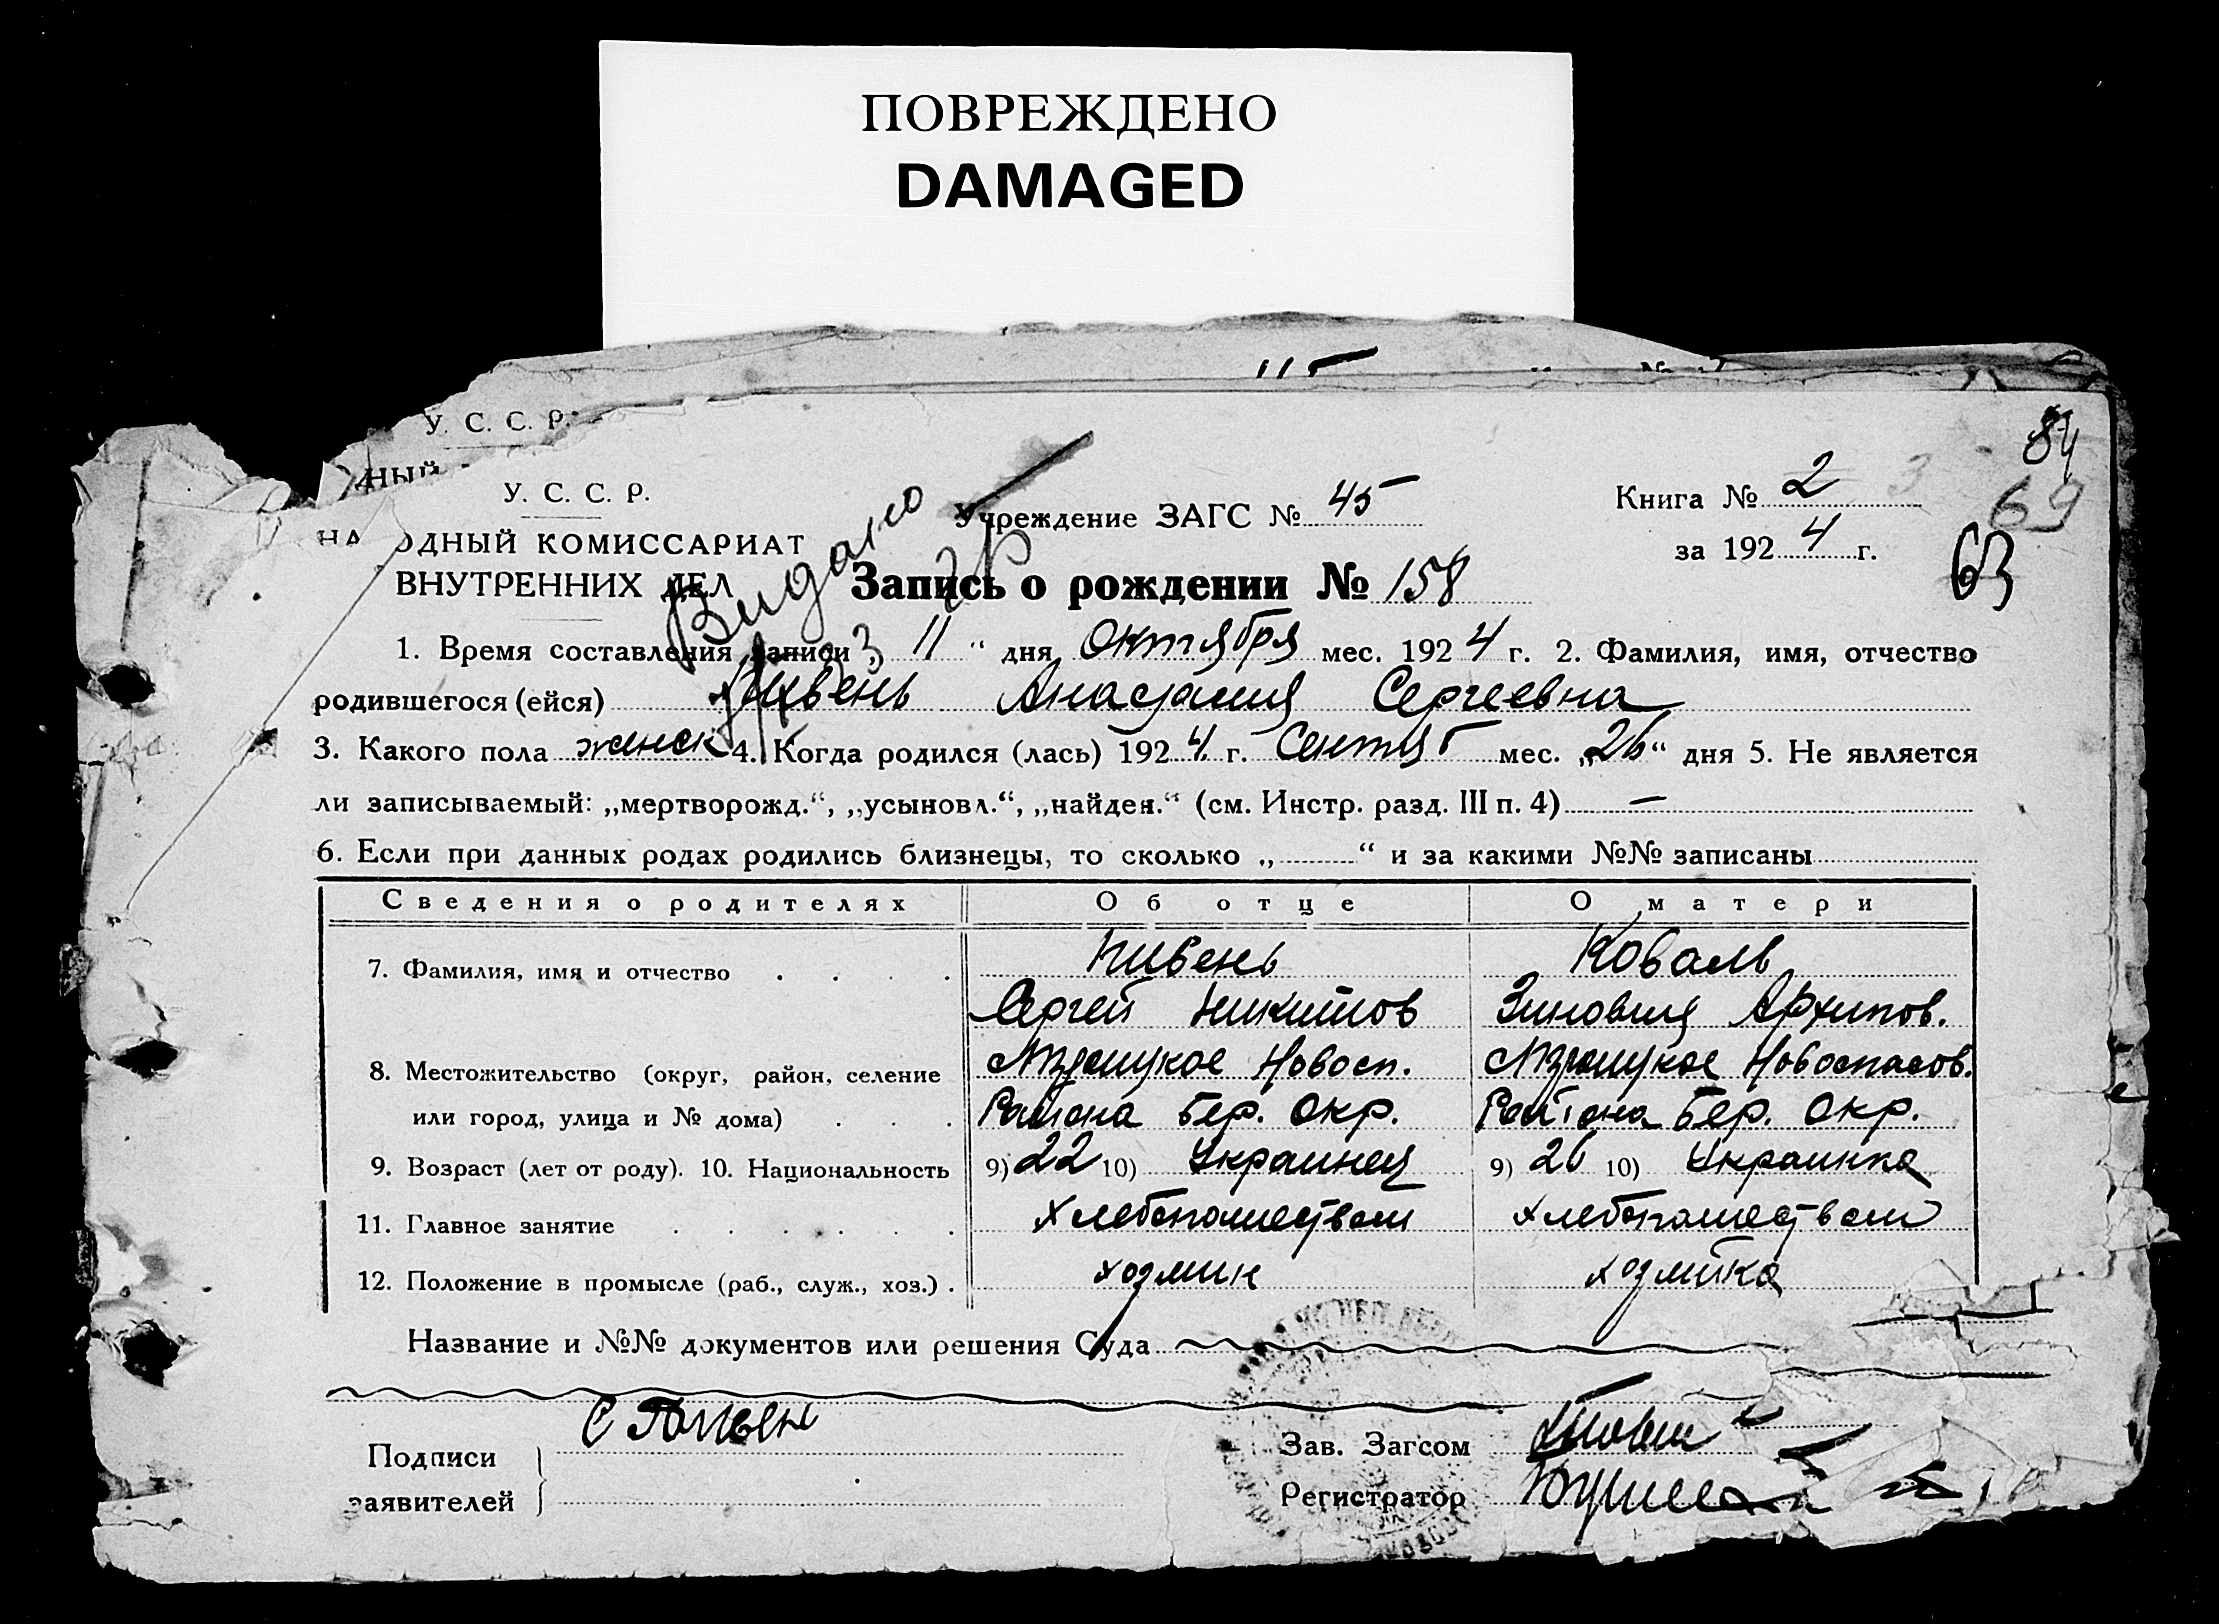 ПОВРЕЖДЕНО
DAMAGED
У. С. С. Р.
У. С. С. Р.
НА ОДНЫЙ КОМИССАРИАТ
ВНУТРЕННИХ ДЕЛ
Учреждение ЗАГС № 45
Книга № 2 3
за 1924 г.
84
69
63
Видано
Запись о рождении № 158
1. Время составления записи „ 11 “ дня Октября мес. 1924 г. 2. Фамилия, имя, отчество
родившегося (ейся) Пивень Анастасия Сергеевна
3. Какого пола женск 4. Когда родился (лась) 1924 г. Сентяб мес. „26“ дня 5. Не является
ли записываемый: „мертворожд.“, „усыновл.“, „найден.“ (см. Инстр. разд. III п. 4) —
6. Если при данных родах родились близнецы, то сколько „ “ и за какими №№ записаны
Сведения о родителях Об отце О матери
7. Фамилия, имя и отчество Пивень Коваль
Сергей Никитов Зиновия Архипов.
8. Местожительство (округ, район, селение Новосп. Новоспасов.
или город, улица и № дома) Района Бер. Окр. Района Бер. Окр.
9. Возраст (лет от роду). 10. Национальность 9) 22 10) Украинец 9) 26 10) Украинка
11. Главное занятие Хлебопашеством Хлебопашеством
12. Положение в промысле (раб., служ., хоз.)
Название и №№ документов или решения Суда
Подписи
заявителей
С Пивень
Зав. Загсом
Регистратор